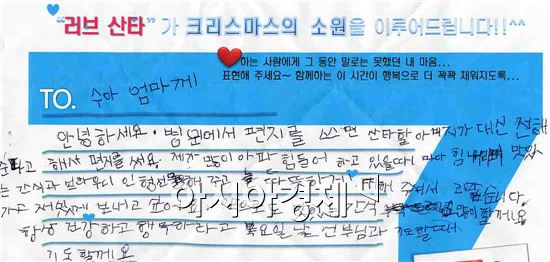 "러브 산타"가 크리스마스의 소원을 이루어드립니다!!^^
♥하는 사람에게 그 동안 말로는 못했던 내 마음...
표현해 주세요~ 함께하는 이 시간이 행복으로 더 꽉꽉 채워지도록...
TO. 수아 엄마께
안녕하세요. 병원에서 편지를 쓰면 산타할아버지가 대신 전해
준다고 해서 편지를 써요. 제가 많이 아파 힘들어 하고 있을때 마다 힘내라며 맛있
는 간식과 인형선물해 주고 따뜻하게 해 주셔서
가고 재밌게 보내고 간식 많이 할께요
항상 건강하고 행복하라고 목요일날 선부님과 기도할때
기도할께요
아시아경제